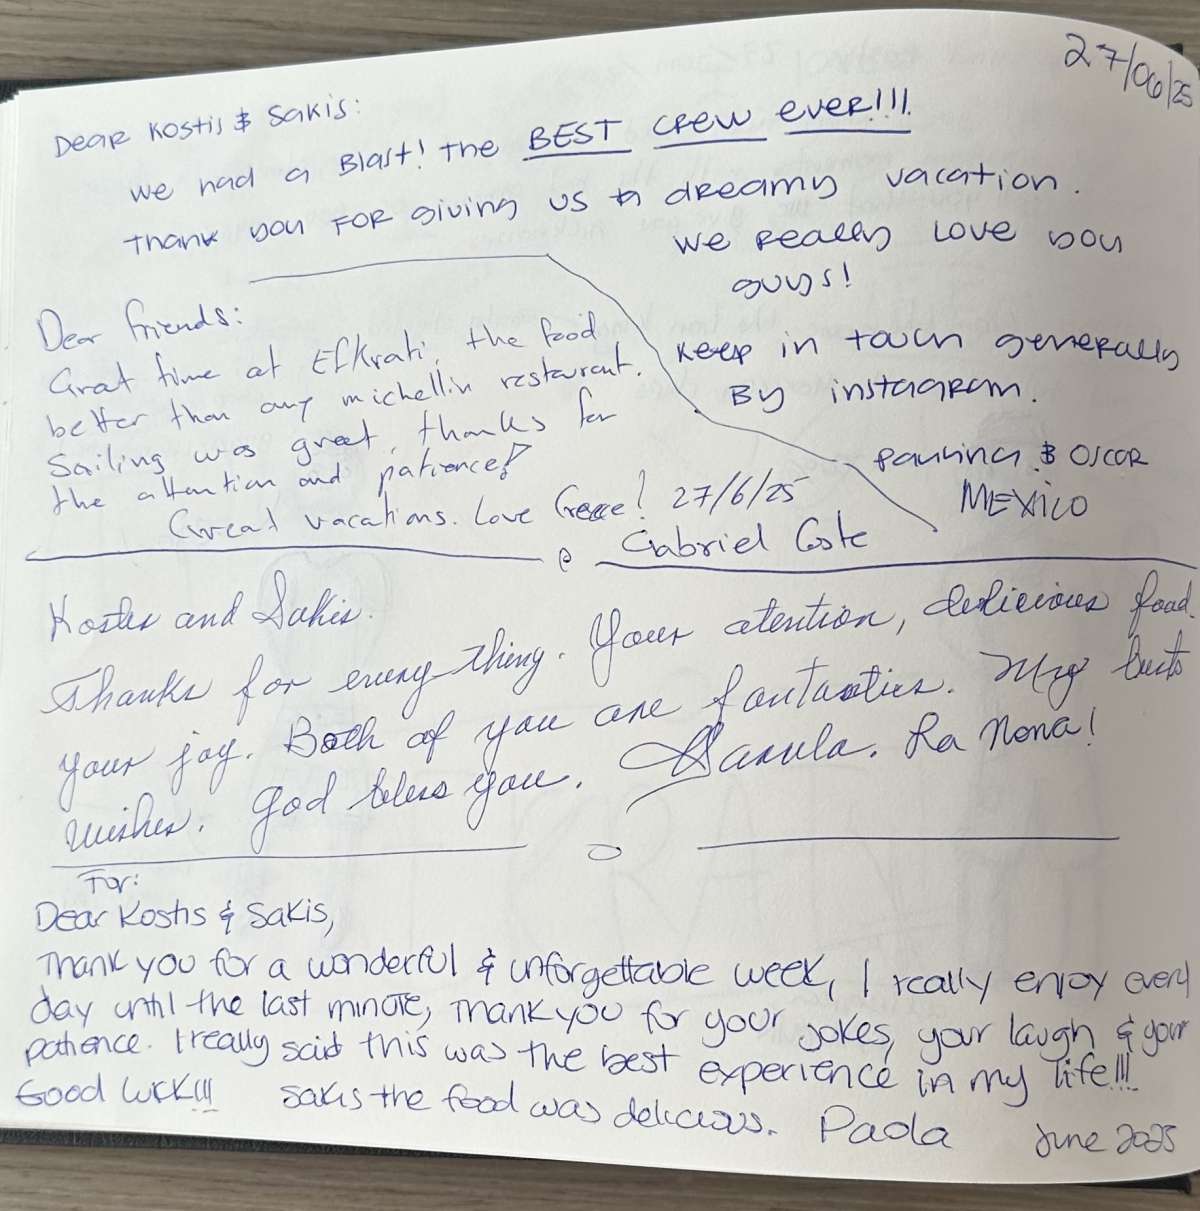 27/06/25
Dear Kostis & Sakis:
we had a Blast! the BEST CREW EVER!!!
thank you FOR giving us a dreamy vacation.
we Really Love you
guys!
Keep in touch generally
By instagram.
Paulina & OSCAR
MEXICO
Dear friends:
Grat time at Efkrati, the food
better than any michellin restaurant.
Sailing was great, thanks for
the attention and patience!
Great vacations. Love Greece! 27/6/25
Gabriel Coste
Kostis and Sakis.
Thanks for every thing. Your atention, delicious food.
your joy. Both of you are fantastics. My bests
wishes. God bless you. La Nona!
For:
Dear Kostis & Sakis,
Thank you for a wonderful & unforgettable week, I really enjoy every
day until the last minute, Thank you for your jokes, your laugh & your
patience. I really said this was the best experience in my life!!!
Good Luck!!! Sakis the food was delicious. Paola June 2025